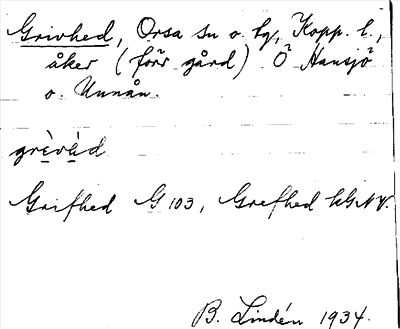 Grivhed, Orsa sn o. tg, Kopp. l.,
åker (förr gård) Ö Hansjö
o. Unnån.
grèvàd
Grifhed G 103, Grefhed kGNV.
B. Lindén 1934.